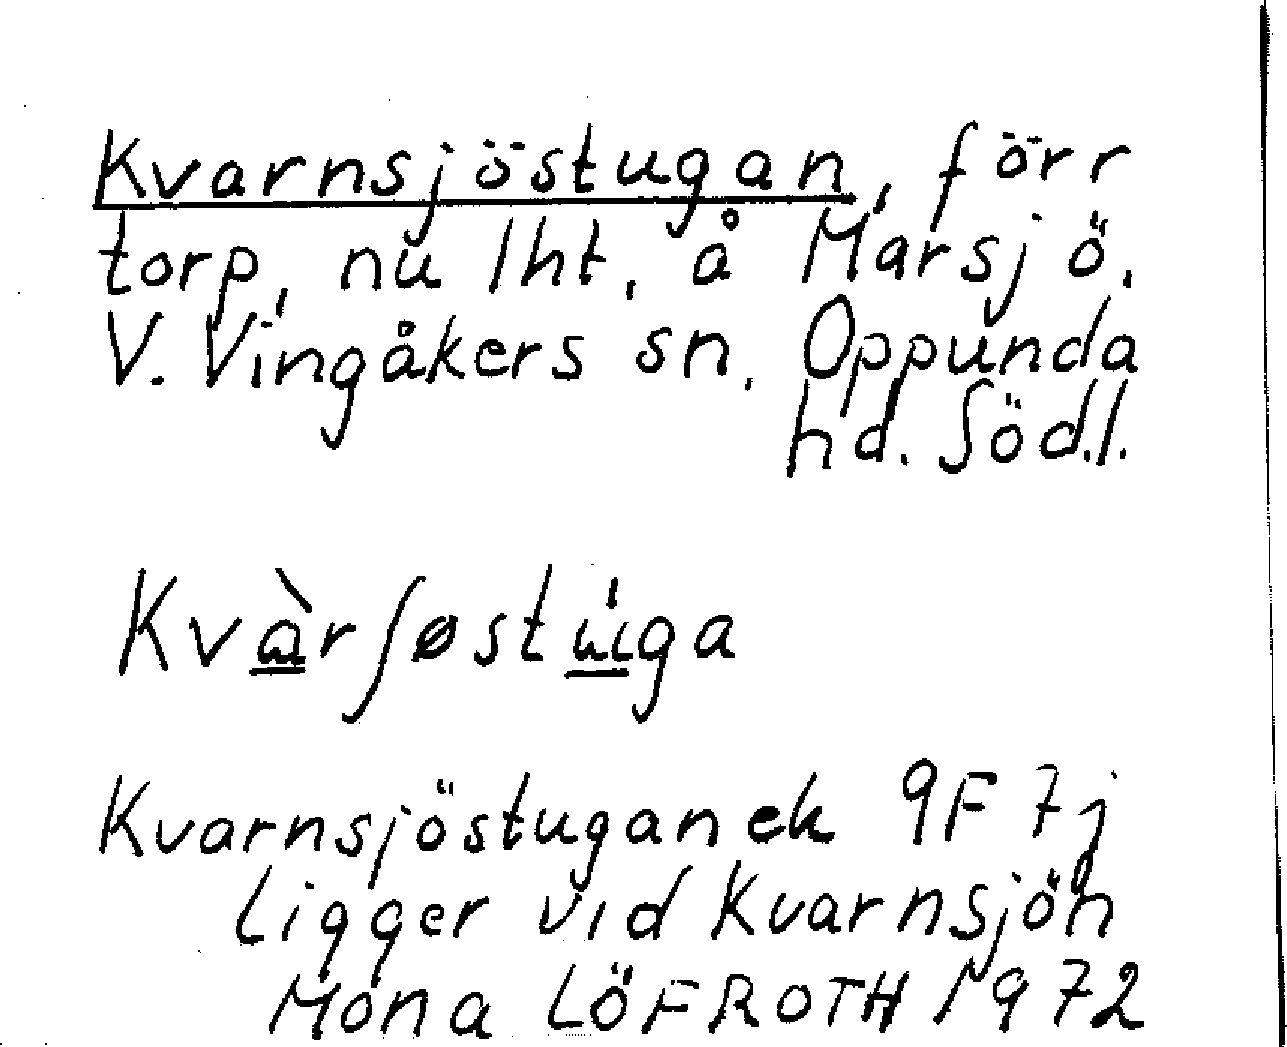 Kvarnsjöstugan, förr
torp, nu lht, å Marsjö,
V. Vingåkers sn, Oppunda
hd. Södl.
Kvà̲rʃøstu̲̍ga
Kvarnsjöstugan ek 9F 7j
Ligger vid Kvarnsjön
Mona LÖFROTH 1972